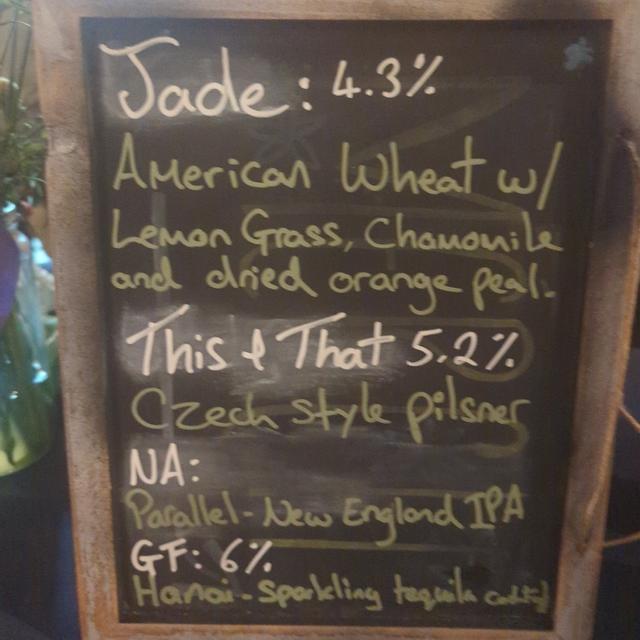 Jade: 4.3%
American Wheat w/
Lemon Grass, Chamomile
and dried orange peal.
This & That 5.2%
Czech style pilsner
NA:
Parallel - New England IPA
GF: 6%
Hanoi - Sparkling tequila